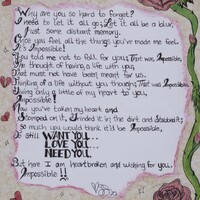 Why are you so hard to forget?
I need to let it all go, Let it all be a blur,
Just some distant memory.
Once you feel all the things you've made me feel.
It's Impossible!
You told me not to fall for you, That was Impossible.
The thought of having a life with you,
That must not have been meant for us.
Thinking of a life without you though, That was Impossible.
Giving only a little of my heart to you,
Impossible!
Now you've taking my heart and
Stomped on it, Grinded it in the dirt and Stabbed it;
So much you would think it'll be Impossible,
To still WANT YOU...
LOVE YOU...
NEED YOU.
But here I am heartbroken and wishing for you.
Impossible!!